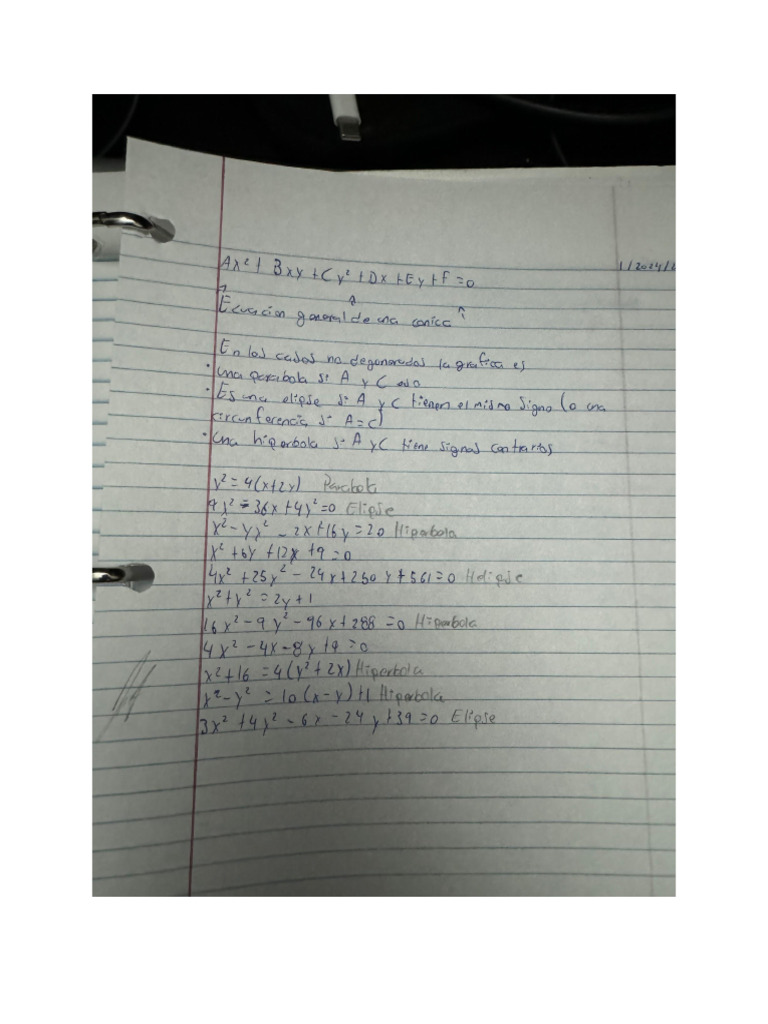 Ax² + Bxy + Cy² + Dx + Ey + F = 0
1/2024/
Ecuacion general de una conica
En los casos no degenerados la grafica es
• una parabola si A y C es 0
• Es una elipse si A y C tienen el mismo signo (o una
circunferencia si A = C)
• una hiperbola si A y C tiene signos contrarios
y² = 4(x+2y) Parabola
9x² - 36x + 4y² = 0 Elipse
x² - y² - 2x + 16y = 20 Hiperbola
x² + 6y + 12x + 9 = 0
4x² + 25y² - 24x + 250y + 561 = 0 Helipse
x² + y² = 2y + 1
16x² - 9y² - 96x + 288 = 0 Hiperbola
4x² - 4x - 8y + 9 = 0
x² + 16 = 4(y² + 2x) Hiperbola
x² - y² = 10(x-y) + 1 Hiperbola
3x² + 4y² - 6x - 24y + 39 = 0 Elipse